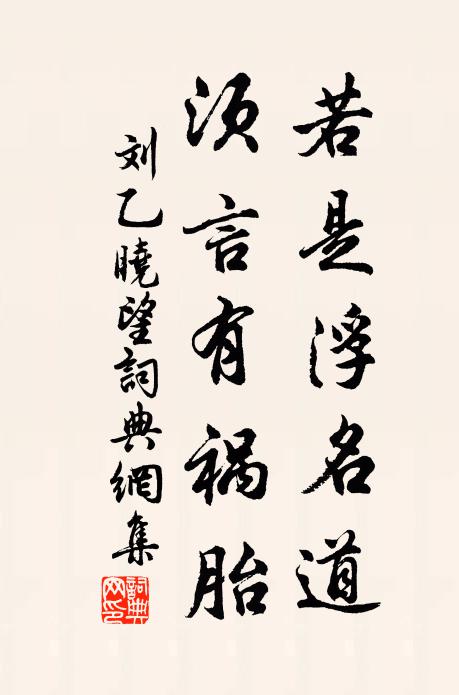 若是浮名道
须言有祸胎
刘乙曉望詞典網集
詞典网印